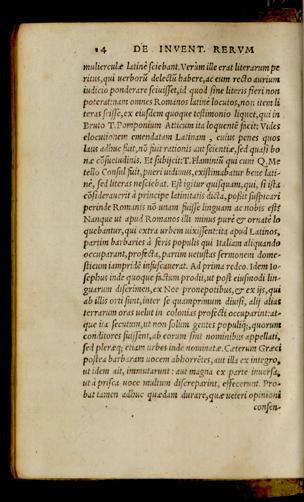 14 DE INVENT. RERVM
mulierculæ latinè sciebant. Verùm ille erat literarum pe
ritus, qui uerborũ delectũ habere, ac eum recto aurium
iudicio ponderare sciuisset, id quod sine literis fieri non
poterat: nam omnes Romanos latinè locutos, non item li
teras scisse, ex eiusdem quoque testimonio liquet, qui in
Bruto T. Pomponium Atticum ita loquentẽ facit: Vides
elocutionem emendatam Latinam, cuius penes quos
laus adhuc fiat, nõ fuit rationis aut scientiæ, sed quasi bo
næ cõsuetudinis. Et subijcit: T. Flaminiũ qui cum Q. Me
tello Consul fuit, pueri uidimus, existimabatur bene lati-
nè, sed literas nesciebat. Est igitur quisquam, qui, si ista
cõsiderauerit à principe latinitatis dicta, possit suspicari
perinde Romanis nõ unam fuisse linguam ac nobis est?
Nanque ut apud Romanos illi minus purè & ornatè lo
quebantur, qui extra urbem uixissent: ita apud Latinos,
partim barbaries à feris populis qui Italiam aliquando
occuparant, profecta, partim uetustas sermonem dome-
sticum iampridẽ infuscauerat. Ad prima redeo. Idem Io-
sephus inde quoque factum prodit, ut post eiusmodi lin-
guarum discrimen, ex Noe pronepotibus, & ex ijs, qui
ab illis orti sunt, inter se quamprimum diuisi, alij alias
terrarum oras uelut in colonias profecti occuparint: at-
que ita secutum, ut non solùm gentes populiq́;, quorum
conditores fuissent, ab eorum sint nominibus appellati,
sed pleræq; etiam urbes inde nominatæ. Cæterum Græci
postea barbaram uocem abhorrẽtes, aut illa ex integro,
ut idem ait, immutarunt: aut magna ex parte inuersa,
ut à prisca uoce multum discreparint, effecerunt. Pro-
bat tamen adhuc quædam durare, quæ ueteri opinioni
consen-